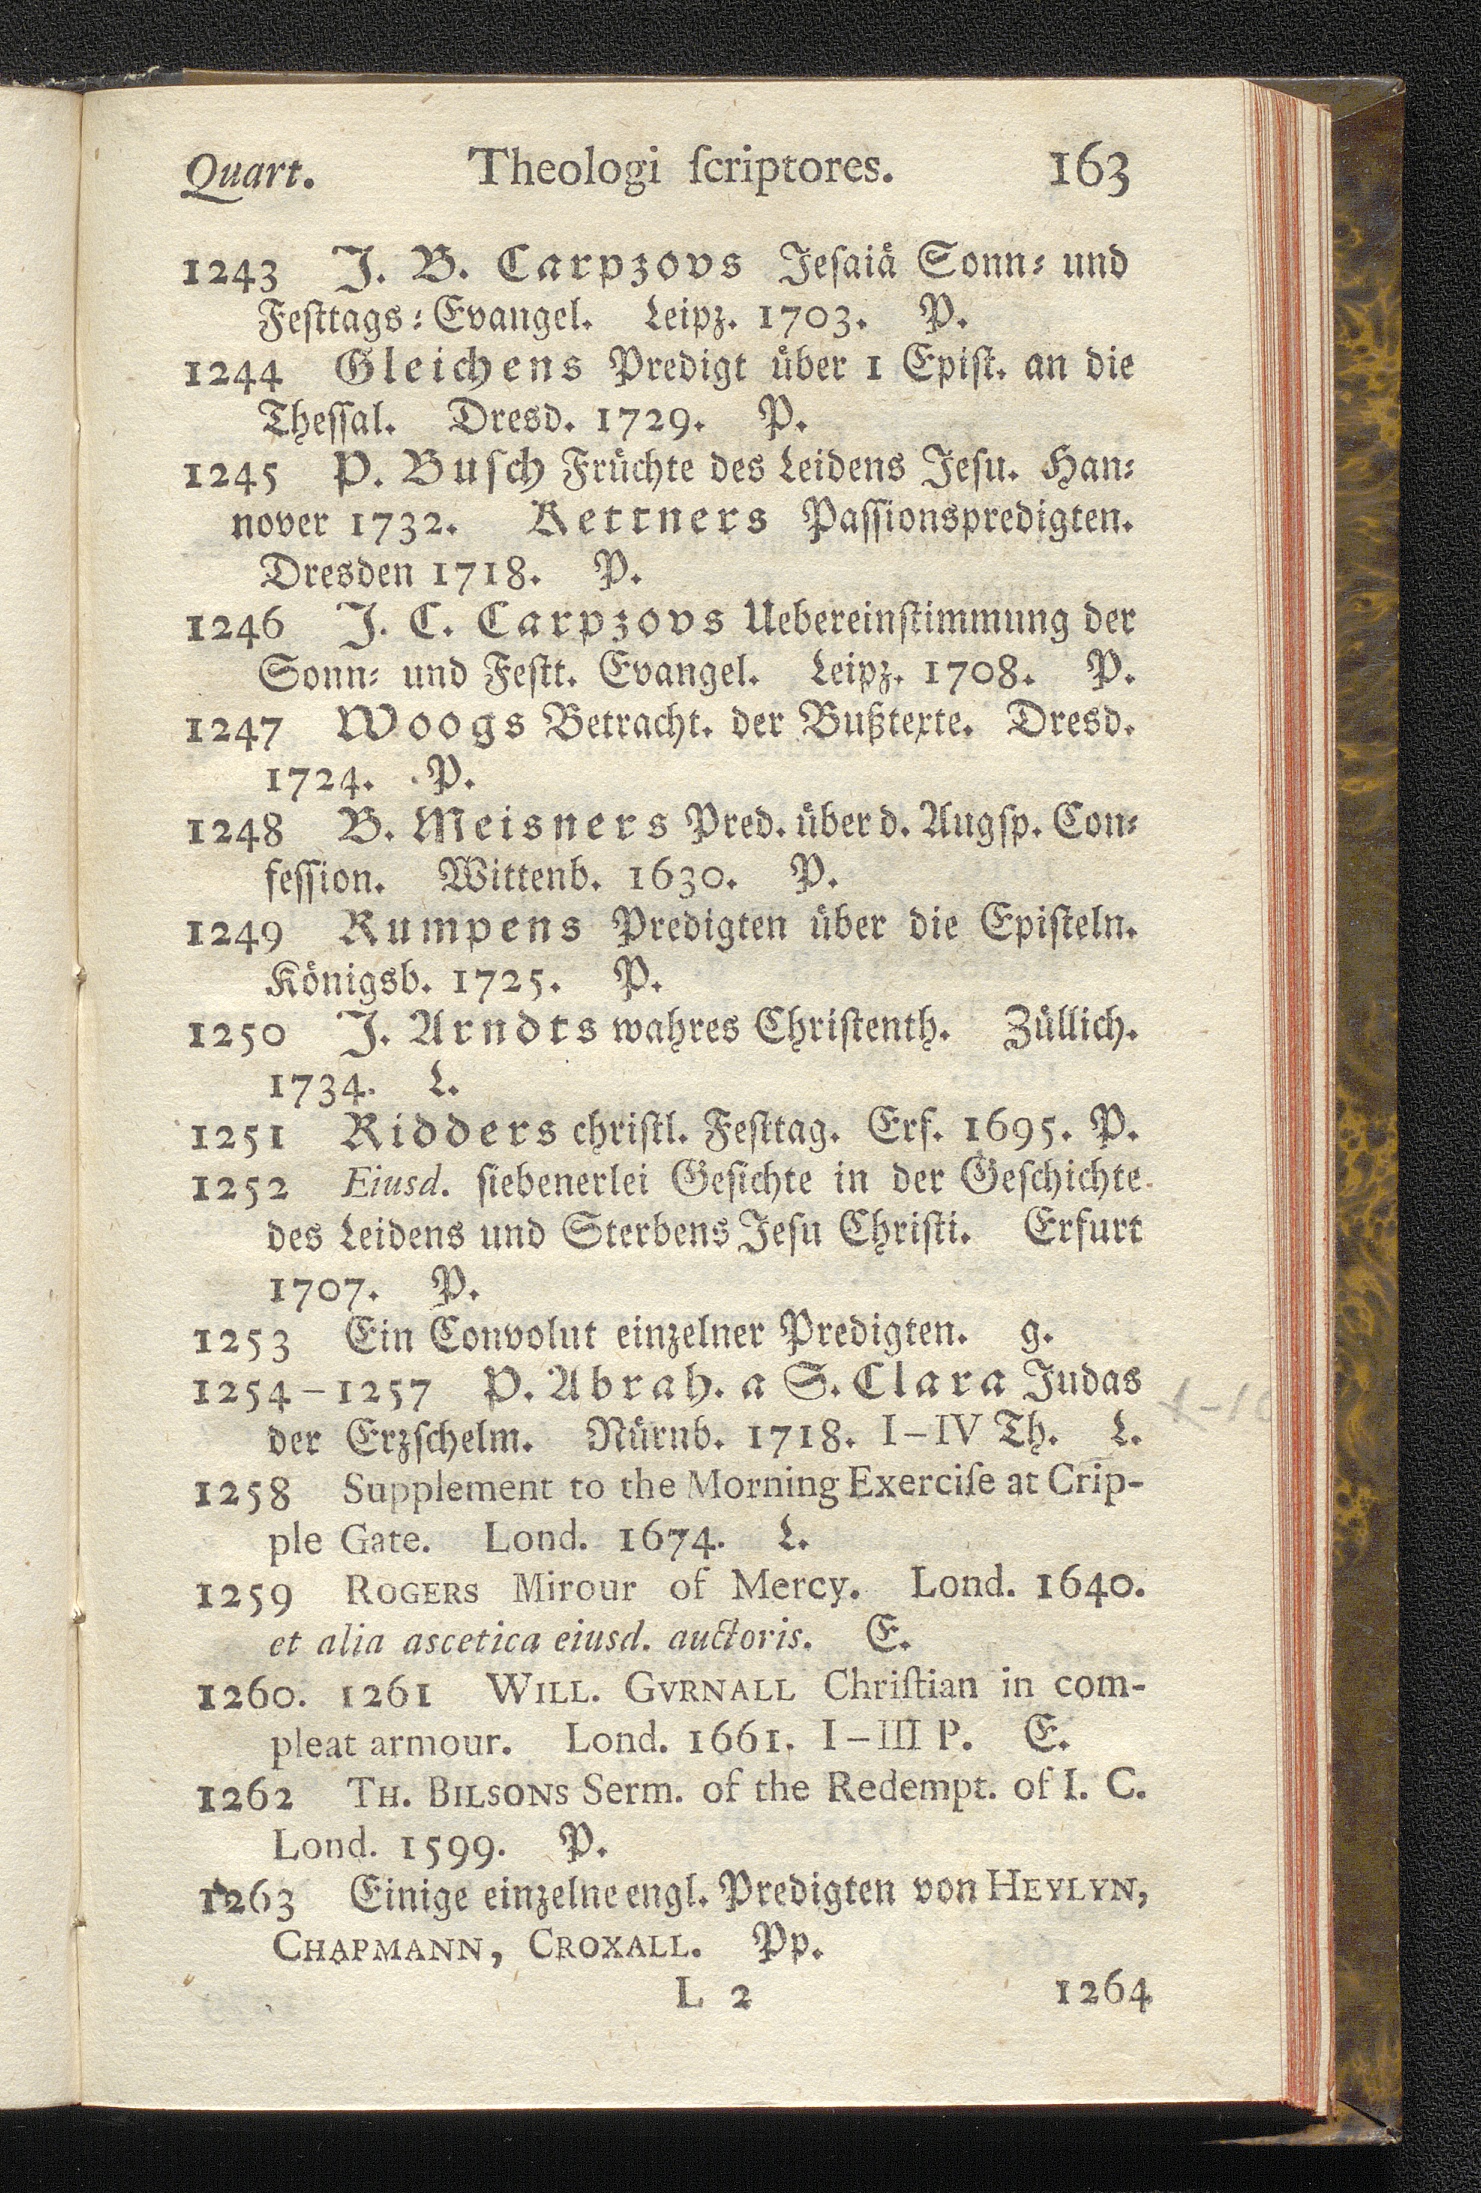 Quart. Theologi ſcriptores. 163
1243 J. B. Carpzovs Jeſaiaͤ Sonn⸗ und
Feſttags⸗Evangel. Leipz. 1703. P.
1244 Gleichens Predigt uͤber 1 Epiſt. an die
Theſſal. Dresd. 1729. P.
1245 P. Buſch Fruͤchte des Leidens Jeſu. Han⸗
nover 1732. Kettners Paſſionspredigten.
Dresden 1718. P.
1246 J. C. Carpzovs Uebereinſtimmung der
Sonn⸗ und Feſtt. Evangel. Leipz. 1708. P.
1247 Woogs Betracht. der Bußtexte. Dresd.
1724. P.
1248 B. Meisners Pred. uͤber d. Augſp. Con⸗
feſſion. Wittenb. 1630. P.
1249 Rumpens Predigten uͤber die Epiſteln.
Koͤnigsb. 1725. P.
1250 J. Arndts wahres Chriſtenth. Zuͤllich.
1734. L.
1251 Ridders chriſtl. Feſttag. Erf. 1695. P.
1252 Eiusd. ſiebenerlei Geſichte in der Geſchichte
des Leidens und Sterbens Jeſu Chriſti. Erfurt
1707. P.
1253 Ein Convolut einzelner Predigten. g.
1254–1257 P. Abrah. a S. Clara Judas
der Erzſchelm. Nuͤrnb. 1718. I–IV Th. L.
1258 Supplement to the Morning Exerciſe at Crip-
ple Gate. Lond. 1674. L.
1259 ROGERS Mirour of Mercy. Lond. 1640.
et alia ascetica eiusd. auctoris. E.
1260. 1261 WILL. GVRNALL Chriſtian in com-
pleat armour. Lond. 1661. I–III P. E.
1262 TH. BILSONS Serm. of the Redempt. of I. C.
Lond. 1599. P.
1263 Einige einzelne engl. Predigten von HEYLYN,
CHAPMANN, CROXALL. Pp.
L 2 1264